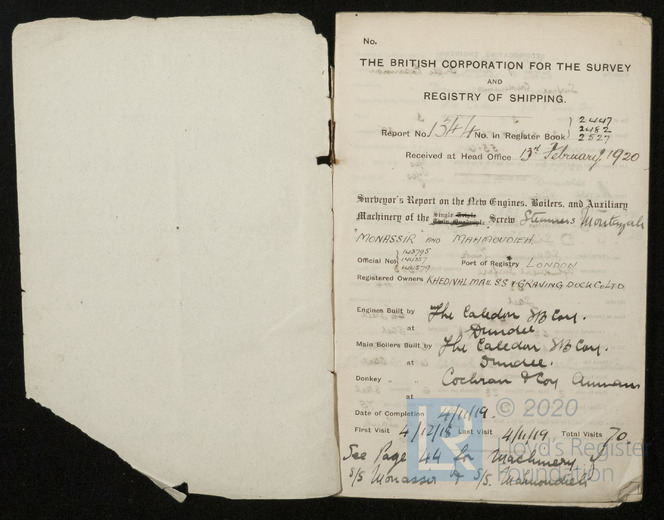 No.
THE BRITISH CORPORATION FOR THE SURVEY
AND
REGISTRY OF SHIPPING.
Report No. 1544 No. in Register Book 2447
2482
2527
Received at Head Office 13th February 1920
Surveyor's Report on the New Engines, Boilers, and Auxiliary
Machinery of the Single Triple Twin Quadruple Screw Steamers
"MONASSIR" AND MAHMOUDIEH
Official No. 144579
Port of Registry LONDON
Registered Owners KHEDIVIAL MAIL SS & GRAVING DOCK Co LTD
Engines Built by The Caledon S/B Coy.
at Dundee
Main Boilers Built by The Caledon S/B Coy.
at Dundee.
Donkey " Cochran & Coy Annan
at
Date of Completion 4/11/19.
First Visit 4/12/18 Last Visit 4/11/19 Total Visits 70.
See Page 44 for Machinery
S/S Monassir & S/S. Mamoudieh
© 2020
Lloyd's Register
Foundation
LR